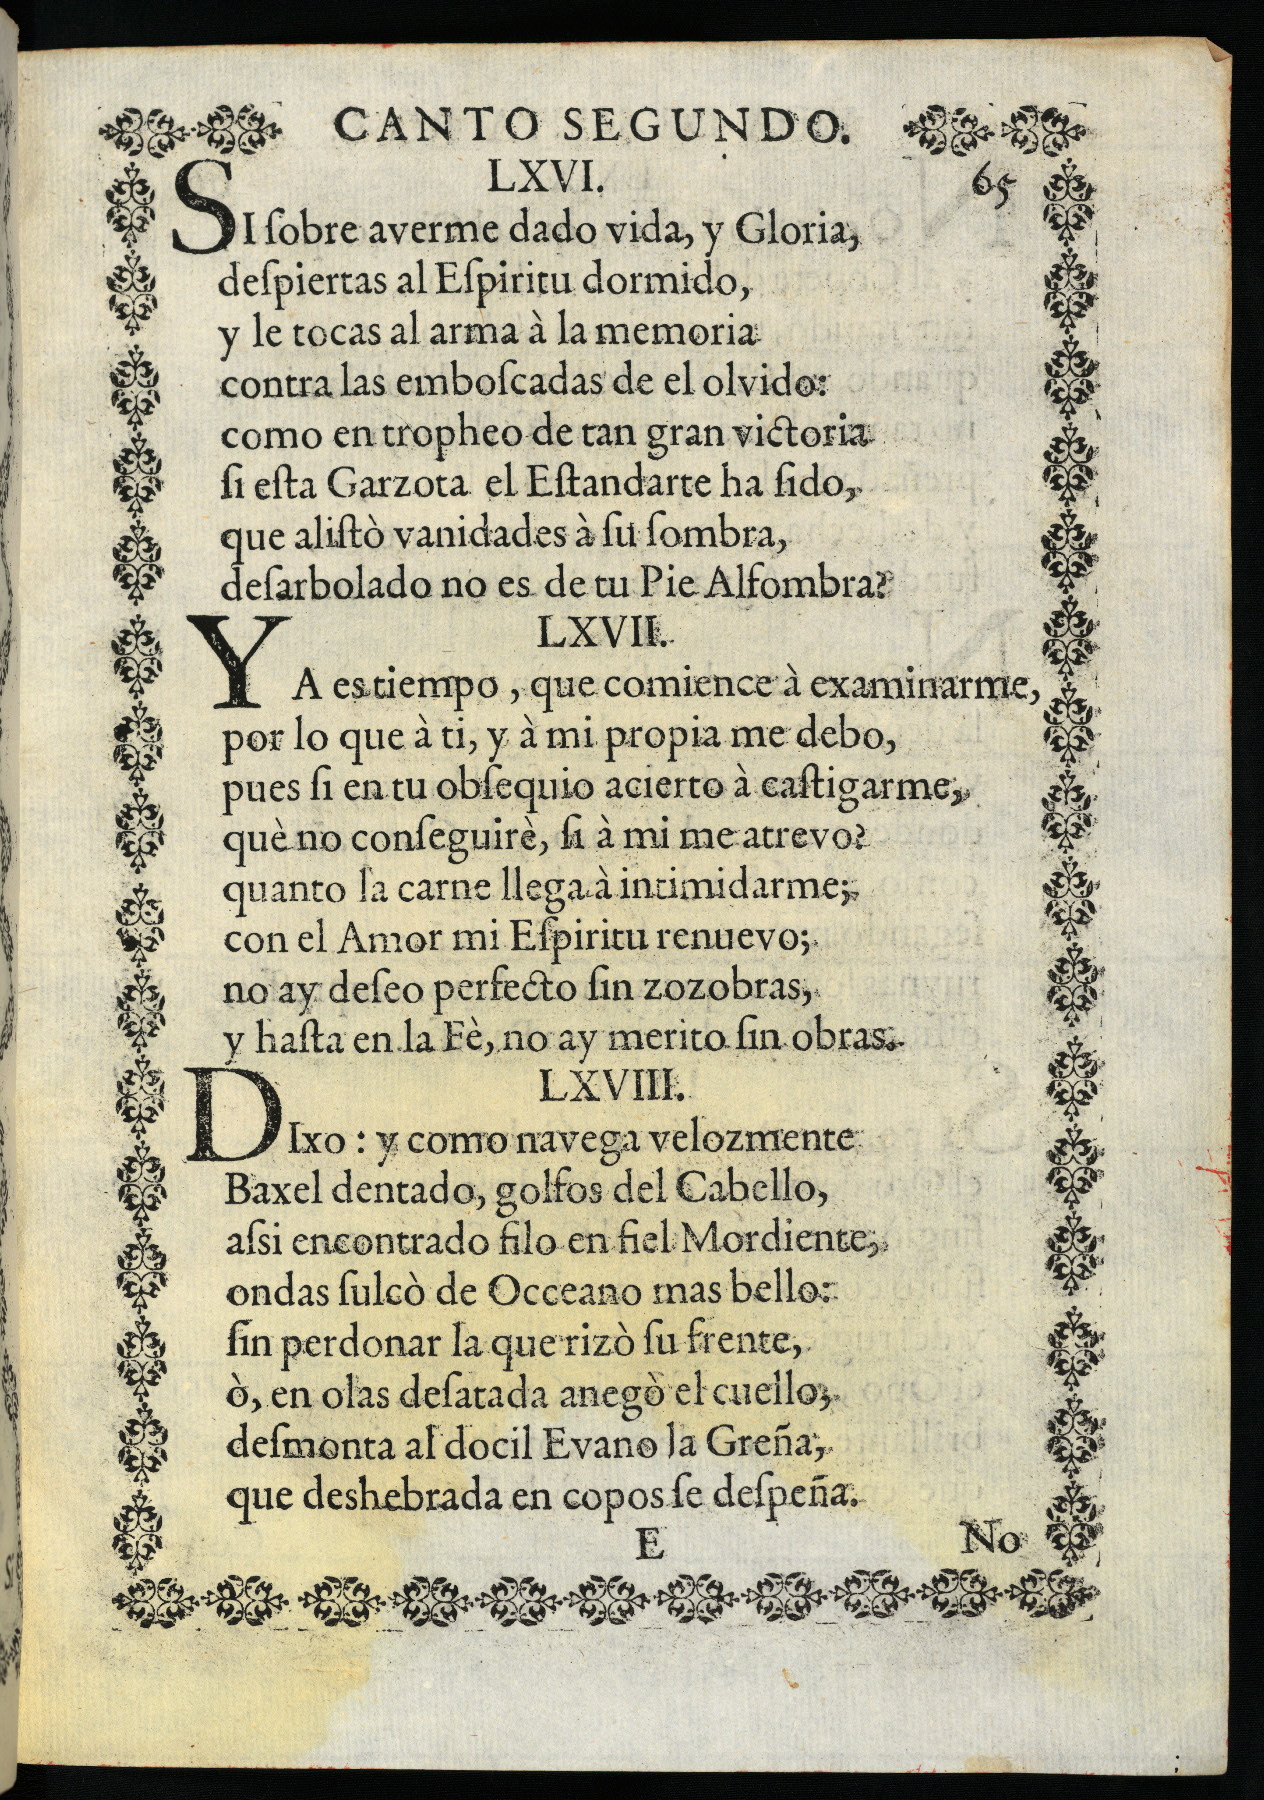 CANTO SEGUNDO.
LXVI. 65
SI ſobre averme dado vida, y Gloria,
deſpiertas al Eſpiritu dormido,
y le tocas al arma à la memoria
contra las emboſcadas de el olvido:
como en tropheo de tan gran victoria
ſi eſta Garzota el Eſtandarte ha ſido,
que aliſtò vanidades à ſu ſombra,
deſarbolado no es de tu Pie Alfombra?
LXVII.
YA es tiempo, que comience à examinarme,
por lo que à ti, y à mi propia me debo,
pues ſi en tu obſequio acierto à caſtigarme,
què no conſeguirè, ſi à mi me atrevo?
quanto la carne llega à intimidarme;
con el Amor mi Eſpiritu renuevo;
no ay deſeo perfecto ſin zozobras,
y haſta en la Fè, no ay merito ſin obras.
LXVIII.
DIxo: y como navega velozmente
Baxel dentado, golfos del Cabello,
aſsi encontrado filo en fiel Mordiente,
ondas ſulcò de Occeano mas bello:
ſin perdonar la que rizò ſu frente,
ò, en olas deſatada anegò el cuello,
deſmonta al docil Evano la Greña,
que deshebrada en copos ſe deſpeña.
E No